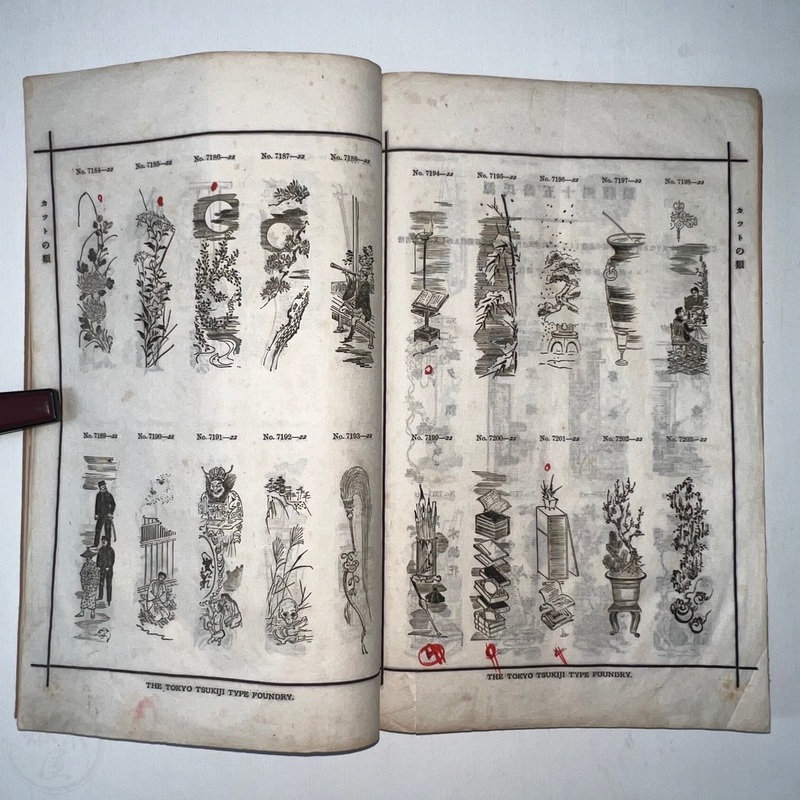 No. 7184—22
No. 7185—22
No. 7186—22
No. 7187—22
No. 7188—22
カットの類
No. 7189—22
No. 7190—22
No. 7191—22
No. 7192—22
No. 7193—22
THE TOKYO TSUKIJI TYPE FOUNDRY.
No. 7194—22
No. 7195—22
No. 7196—22
No. 7197—22
No. 7198—22
カットの類
No. 7199—22
No. 7200—22
No. 7201—22
No. 7202—22
No. 7203—22
THE TOKYO TSUKIJI TYPE FOUNDRY.